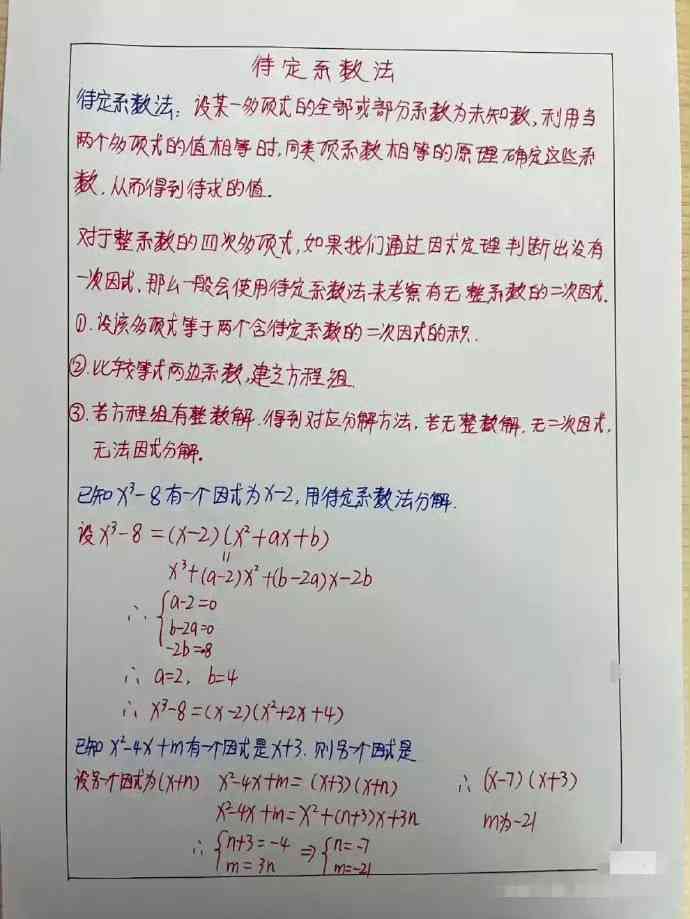 待定系数法
待定系数法：设某一多项式的全部或部分系数为未知数、利用当
两个多项式的值相等时,同类项系数相等的原理确定这些系
数、从而得到待求的值.
对于整系数的四次多项式,如果我们通过因式定理判断出没有
一次因式,那么一般会使用待定系数法来考察有无整系数的二次因式.
①.设该多项式等于两个含待定系数的二次因式的积.
②.比较等式两边系数,建立方程组.
③.若方程组有整数解.得到对应分解方法,若无整数解.无二次因式,
无法因式分解。
已知x³-8有一个因式为x-2,用待定系数法分解.
设x³-8=(x-2)(x²+ax+b)
=
x³+(a-2)x²+(b-2a)x-2b
∴ { a-2=0
b-2a=0
-2b=-8
∴ a=2, b=4
∴ x³-8=(x-2)(x²+2x+4)
已知x²-4x+m有一个因式是x+3.则另一个因式是
设另一个因式为(x+n) x²-4x+m=(x+3)(x+n) ∴ (x-7)(x+3)
x²-4x+m=x²+(n+3)x+3n m为-21
∴ { n+3=-4 ⇒ { n=-7
m=3n m=-21